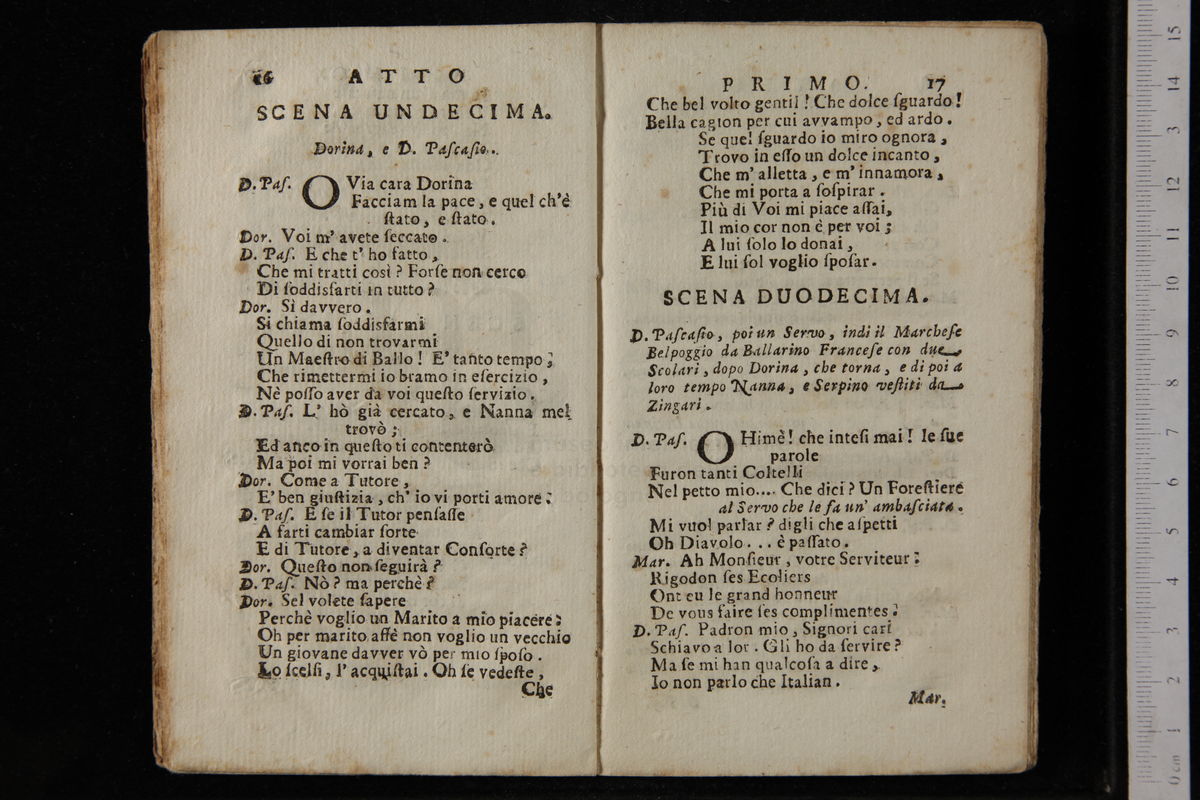 16 ATTO
SCENA UNDECIMA.
Dorina, e D. Paſcaſio.
D. Paſ. O Via cara Dorina
Facciam la pace, e quel ch'è
ſtato, e ſtato.
Dor. Voi m' avete ſeccato.
D. Paſ. E che t' ho fatto,
Che mi tratti così? Forſe non cerco
Di ſoddisfarti in tutto?
Dor. Sì davvero.
Si chiama ſoddisfarmi
Quello di non trovarmi
Un Maeſtro di Ballo! E' tanto tempo;
Che rimettermi io bramo in eſercizio,
Nè poſſo aver da voi queſto ſervizio.
D. Paſ. L' hò già cercato, e Nanna mel
trovò;
Ed anco in queſto ti contenterò
Ma poi mi vorrai ben?
Dor. Come a Tutore,
E' ben giuſtizia, ch' io vi porti amore:
D. Paſ. E ſe il Tutor penſaſſe
A farti cambiar ſorte
E di Tutore, a diventar Conſorte?
Dor. Queſto non ſeguirà?
D. Paſ. Nò? ma perchè?
Dor. Sel volete ſapere
Perchè voglio un Marito a mio piacere:
Oh per marito affè non voglio un vecchio
Un giovane davver vò per mio ſpoſo.
Lo ſcelſi, l' acquiſtai. Oh ſe vedeſte,
Che
PRIMO. 17
Che bel volto gentil! Che dolce ſguardo!
Bella cagion per cui avvampo, ed ardo.
Se quel ſguardo io miro ognora,
Trovo in eſſo un dolce incanto,
Che m' alletta, e m' innamora,
Che mi porta a ſoſpirar.
Più di Voi mi piace aſſai,
Il mio cor non è per voi;
A lui ſolo lo donai,
E lui ſol voglio ſpoſar.
SCENA DUODECIMA.
D. Paſcaſio, poi un Servo, indi il Marcheſe
Belpoggio da Ballarino Franceſe con due
Scolari, dopo Dorina, che torna, e di poi a
loro tempo Nanna, e Serpino veſtiti da
Zingari.
D. Paſ. O Himè! che inteſi mai! le ſue
parole
Furon tanti Coltelli
Nel petto mio.... Che dici? Un Foreſtiere
al Servo che le fa un' ambaſciata.
Mi vuol parlar? digli che aſpetti
Oh Diavolo... è paſſato.
Mar. Ah Monſieur, votre Serviteur:
Rigodon ſes Ecoliers
Ont eu le grand honneur
De vous faire ſes complimentes:
D. Paſ. Padron mio, Signori cari
Schiavo a lor. Gli ho da ſervire?
Ma ſe mi han qualcoſa a dire,
Io non parlo che Italian.
Mar.